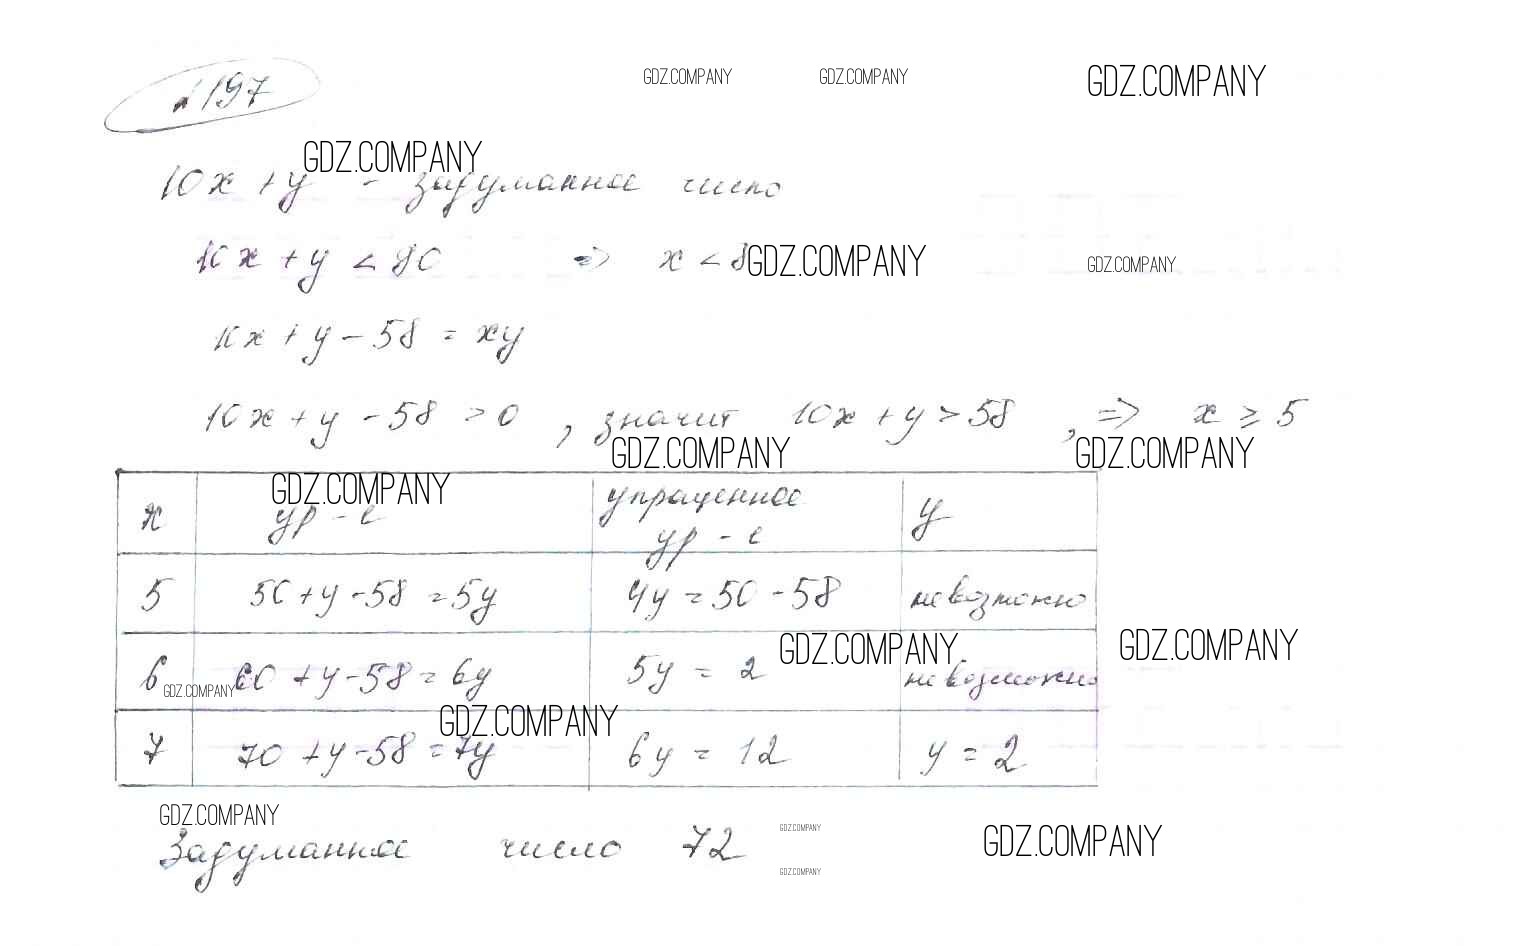 № 197
GDZ.COMPANY GDZ.COMPANY GDZ.COMPANY
GDZ.COMPANY
10x + y - задуманное число
10x + y < 80 => x < 8
GDZ.COMPANY GDZ.COMPANY
10x + y - 58 = xy
10x + y - 58 > 0 , значит 10x + y > 58 , => x ≥ 5
GDZ.COMPANY GDZ.COMPANY
GDZ.COMPANY
x ур-е упрощенное ур-е y
5 50 + y - 58 = 5y 4y = 50 - 58 невозможно
GDZ.COMPANY GDZ.COMPANY
6 60 + y - 58 = 6y 5y = 2 невозможно
GDZ.COMPANY
GDZ.COMPANY
7 70 + y - 58 = 7y 6y = 12 y = 2
GDZ.COMPANY
GDZ.COMPANY
Задуманное число 72
GDZ.COMPANY
GDZ.COMPANY